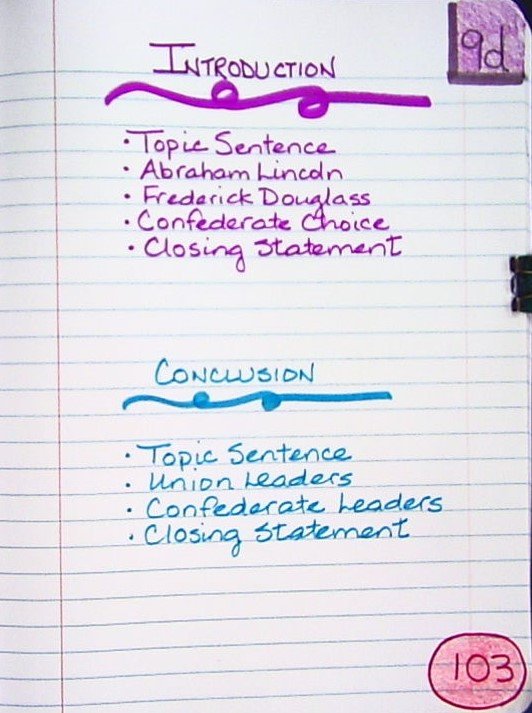 9d
INTRODUCTION
• Topic Sentence
• Abraham Lincoln
• Frederick Douglass
• Confederate Choice
• Closing Statement
CONCLUSION
• Topic Sentence
• Union Leaders
• Confederate Leaders
• Closing Statement
103